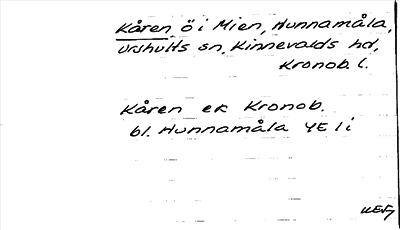 Kåren, ö i Mien, Hunnamåla,
Urshults sn, Kinnevalds hd,
Kronob. l.
Kåren ek Kronob.
bl. Hunnamåla 4E 1 i